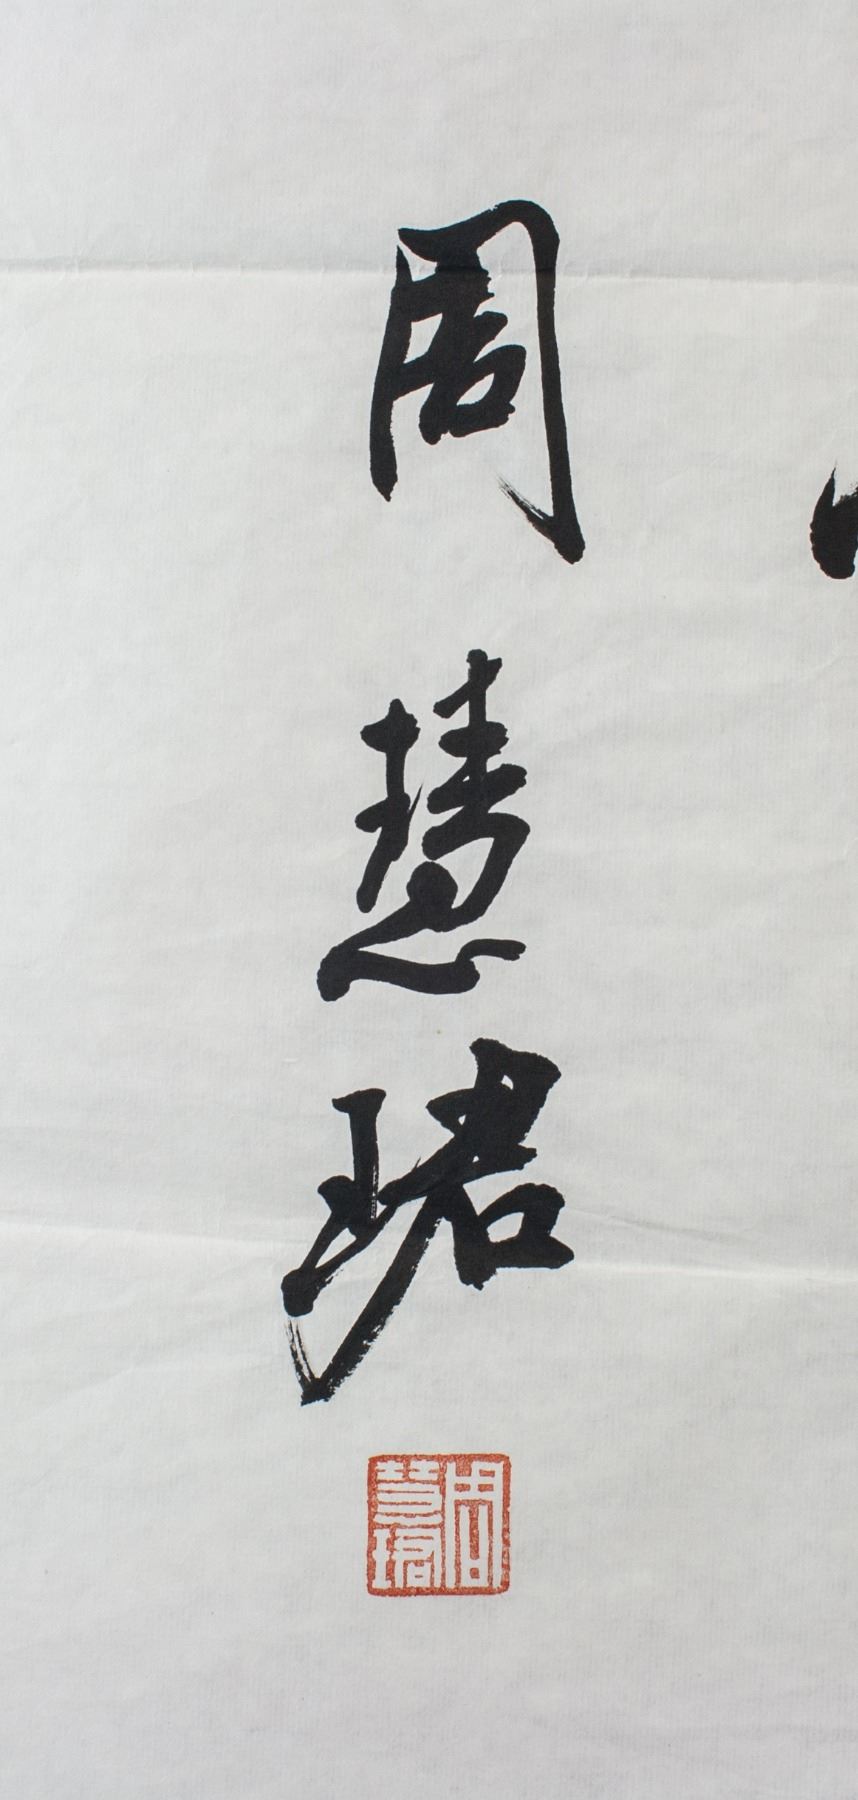 周慧珺
周慧珺